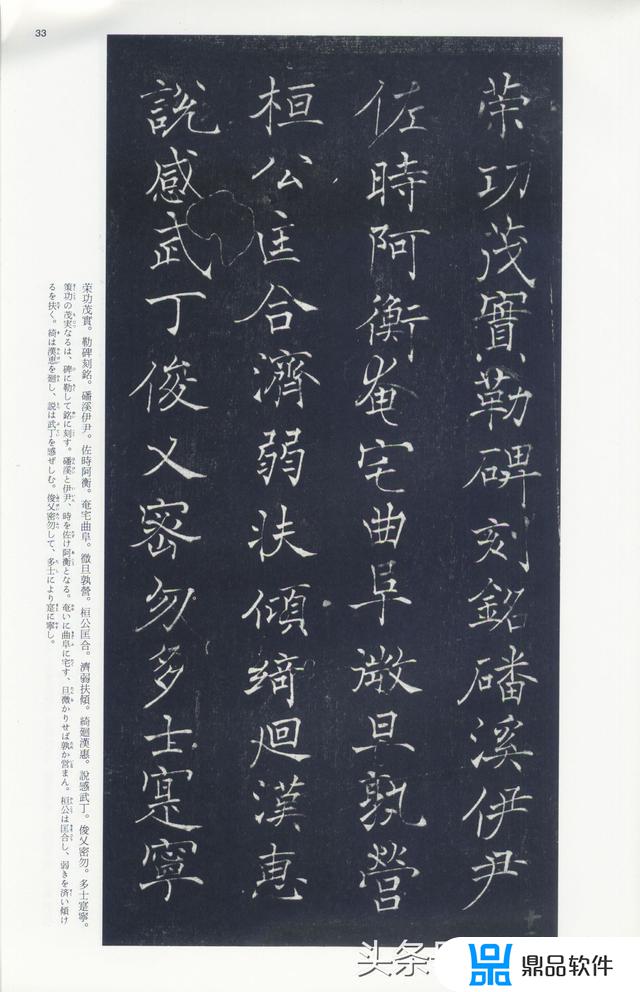 33
荣功茂實勒碑刻銘磻溪伊尹
佐時阿衡奄宅曲阜微旦孰營
桓公匡合濟弱扶傾綺廻漢惠
說感武丁俊乂密勿多士寔寧
栄功茂實。勒碑刻銘。磻溪伊尹。佐時阿衡。奄宅曲阜。微旦孰營。桓公匡合。濟弱扶傾。綺廻漢惠。說感武丁。俊乂密勿。多士寔寧。
策功の茂実なるは、碑に勒して銘に刻す。磻溪と伊尹、時を佐け阿衡となる。奄いに曲阜に宅す、旦微かりせば孰か営まん。桓公は匡合し、弱きを済い傾け
るを扶く。綺は漢恵を廻し、説は武丁を感ぜしむ。俊乂密勿して、多士により寔に寧し。
头条
鼎品软件